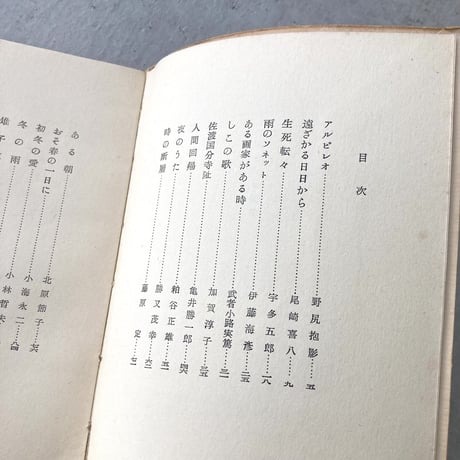 目次
アルビレオ……野尻抱影……五
遠ざかる日日から……尾崎喜八……九
生死転々……宇多五郎……一八
雨のソネット……伊藤海彦……二五
ある画家がある時……武者小路実篤……三一
しこの歌……加賀淳子……三五
佐渡国分寺址……亀井勝一郎……四六
人間回陽……粕谷正雄……五一
夜のうた……勝又茂幸……六二
時の断層……藤原定……七一
ある朝
おそ春の一日に……北原節子……七六
初冬の愛……小海永二……八四
冬の雨……小林哲夫
雄子